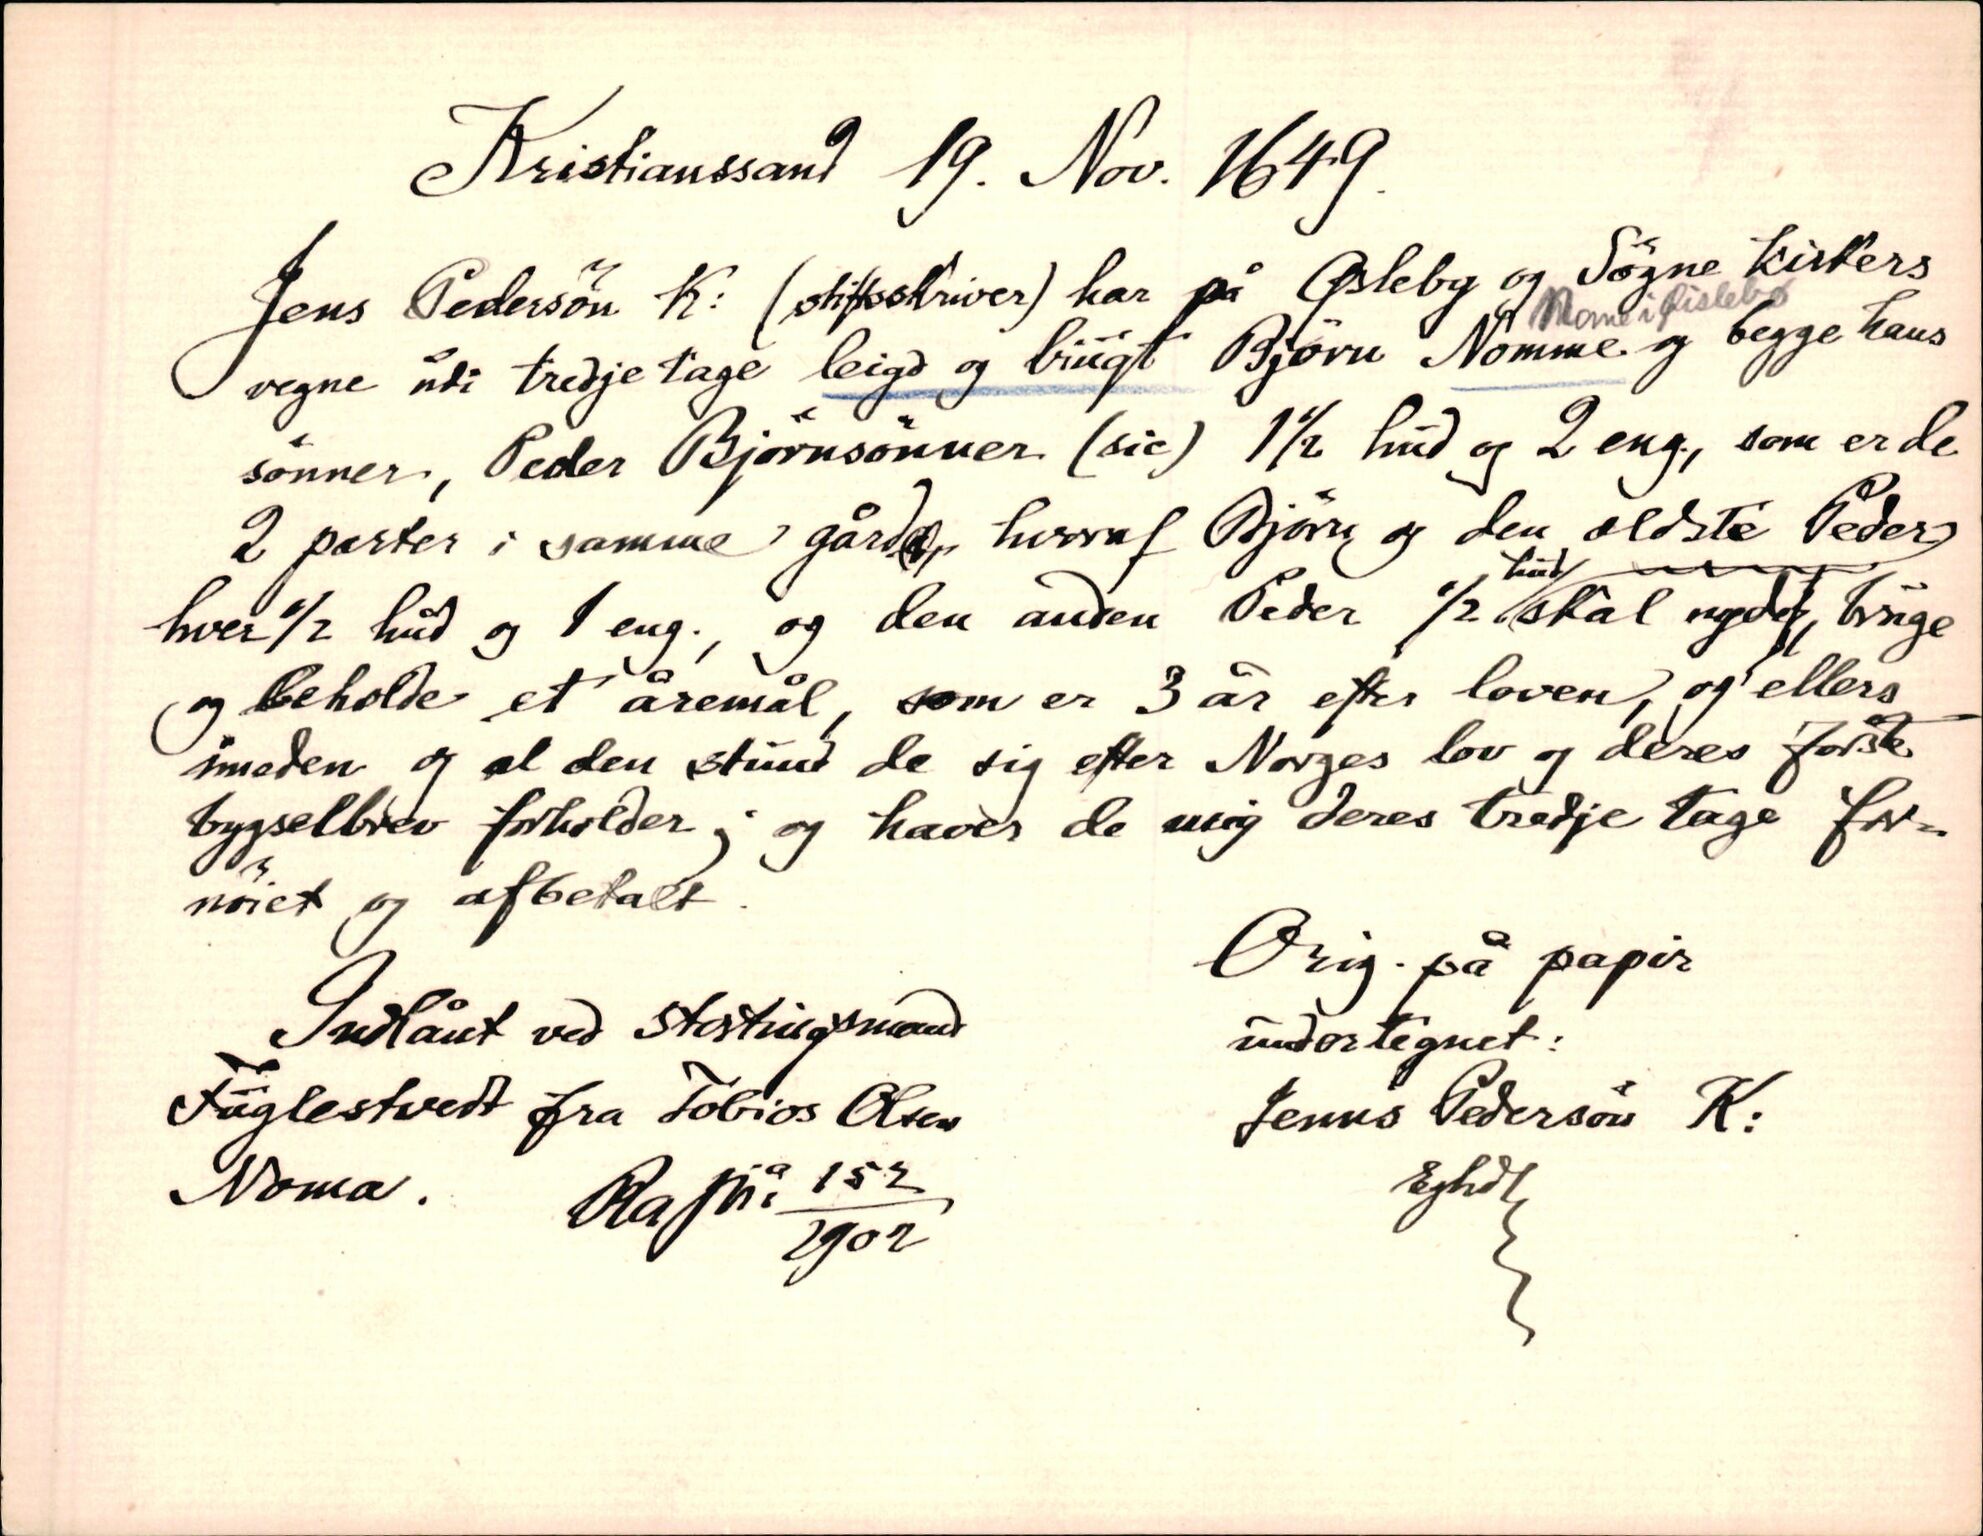 Kristianssand 19. Nov. 1649.
Jens Pedersön K: (stiftsskriver) har på Øsleby og Sögne kirkers
Nome i Øislebø
vegne udi tredje tage leigd og bugt Björn Nömme og begge hans
sönner, Peder Björnsönner (sic) 1 1/2 hud og 2 eng., som er de
2 parter i samme gård, hvoraf Björn og den ældste Peder
hud
hver 1/2 hud og 1 eng., og den anden Peder 1/2 skal nyde, bruge
og beholde et åremål, som er 3 år efter loven, og ellers
imeden og al den stund de sig efter Norges lov og deres förste
bygselbrev forholder; og haver de mig deres tredje tage for-
nöiet og afbetalt.
Orig. på papir
undertegnet:
Jenns Pedersön K:
Eghd
Indlånt ved stortingsmand
Fuglestvedt fra Tobias Olsen
Noma. Ra Jnº 152/1902